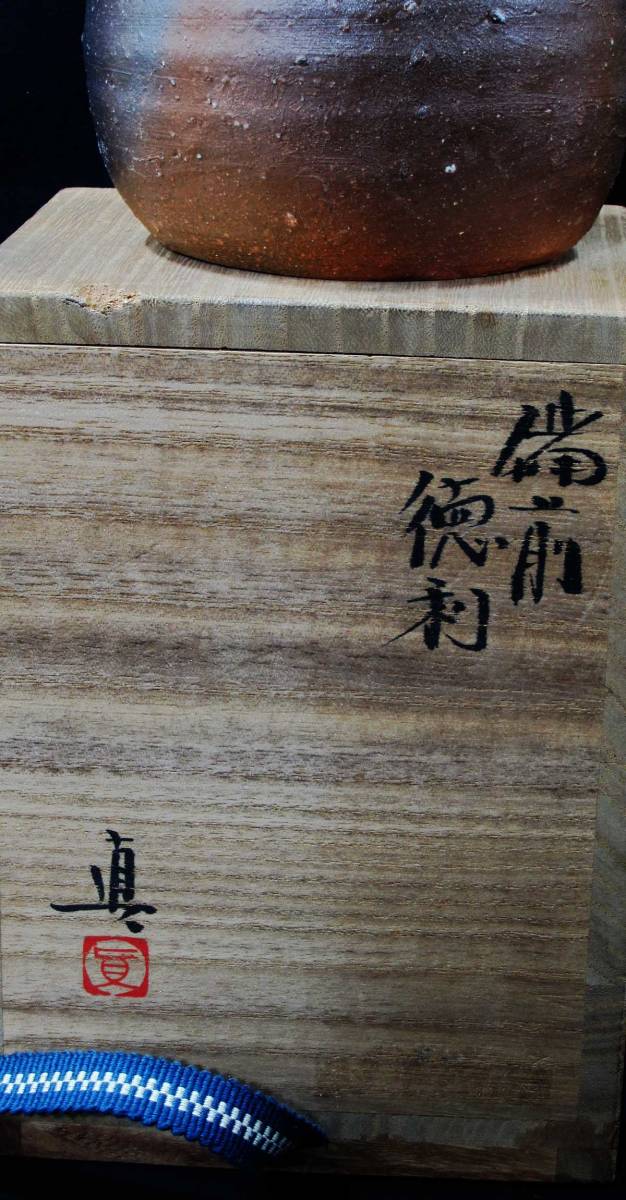 備前
徳利
真